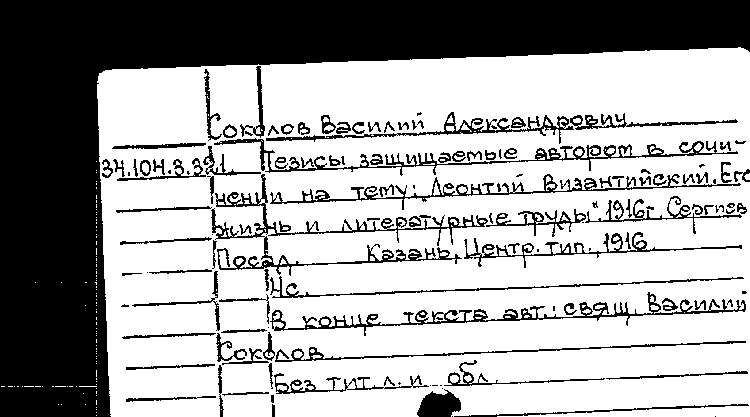 Соколов, Василий Александрович.
34.104.3.321. Тезисы, защищаемые автором в сочи-
нении на тему: "Леонтий Византийский. Его
жизнь и литературные труды". 1916г. Сергиев
Посад. Казань, Центр. тип., 1916.
4с.
В конце текста авт.: свящ. Василий
Соколов.
Без тит. л. и обл.